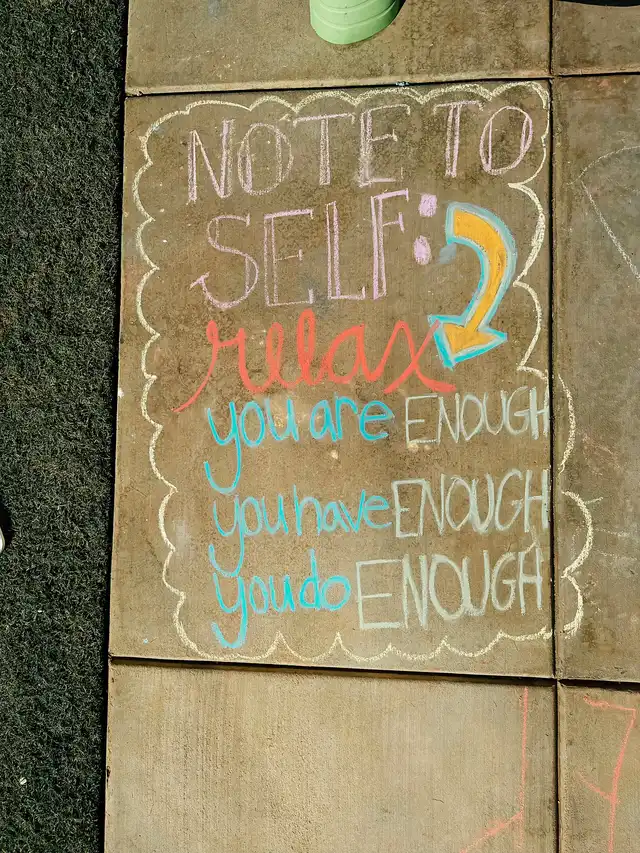 NOTE TO
SELF:
relax
you are ENOUGH
you have ENOUGH
you do ENOUGH